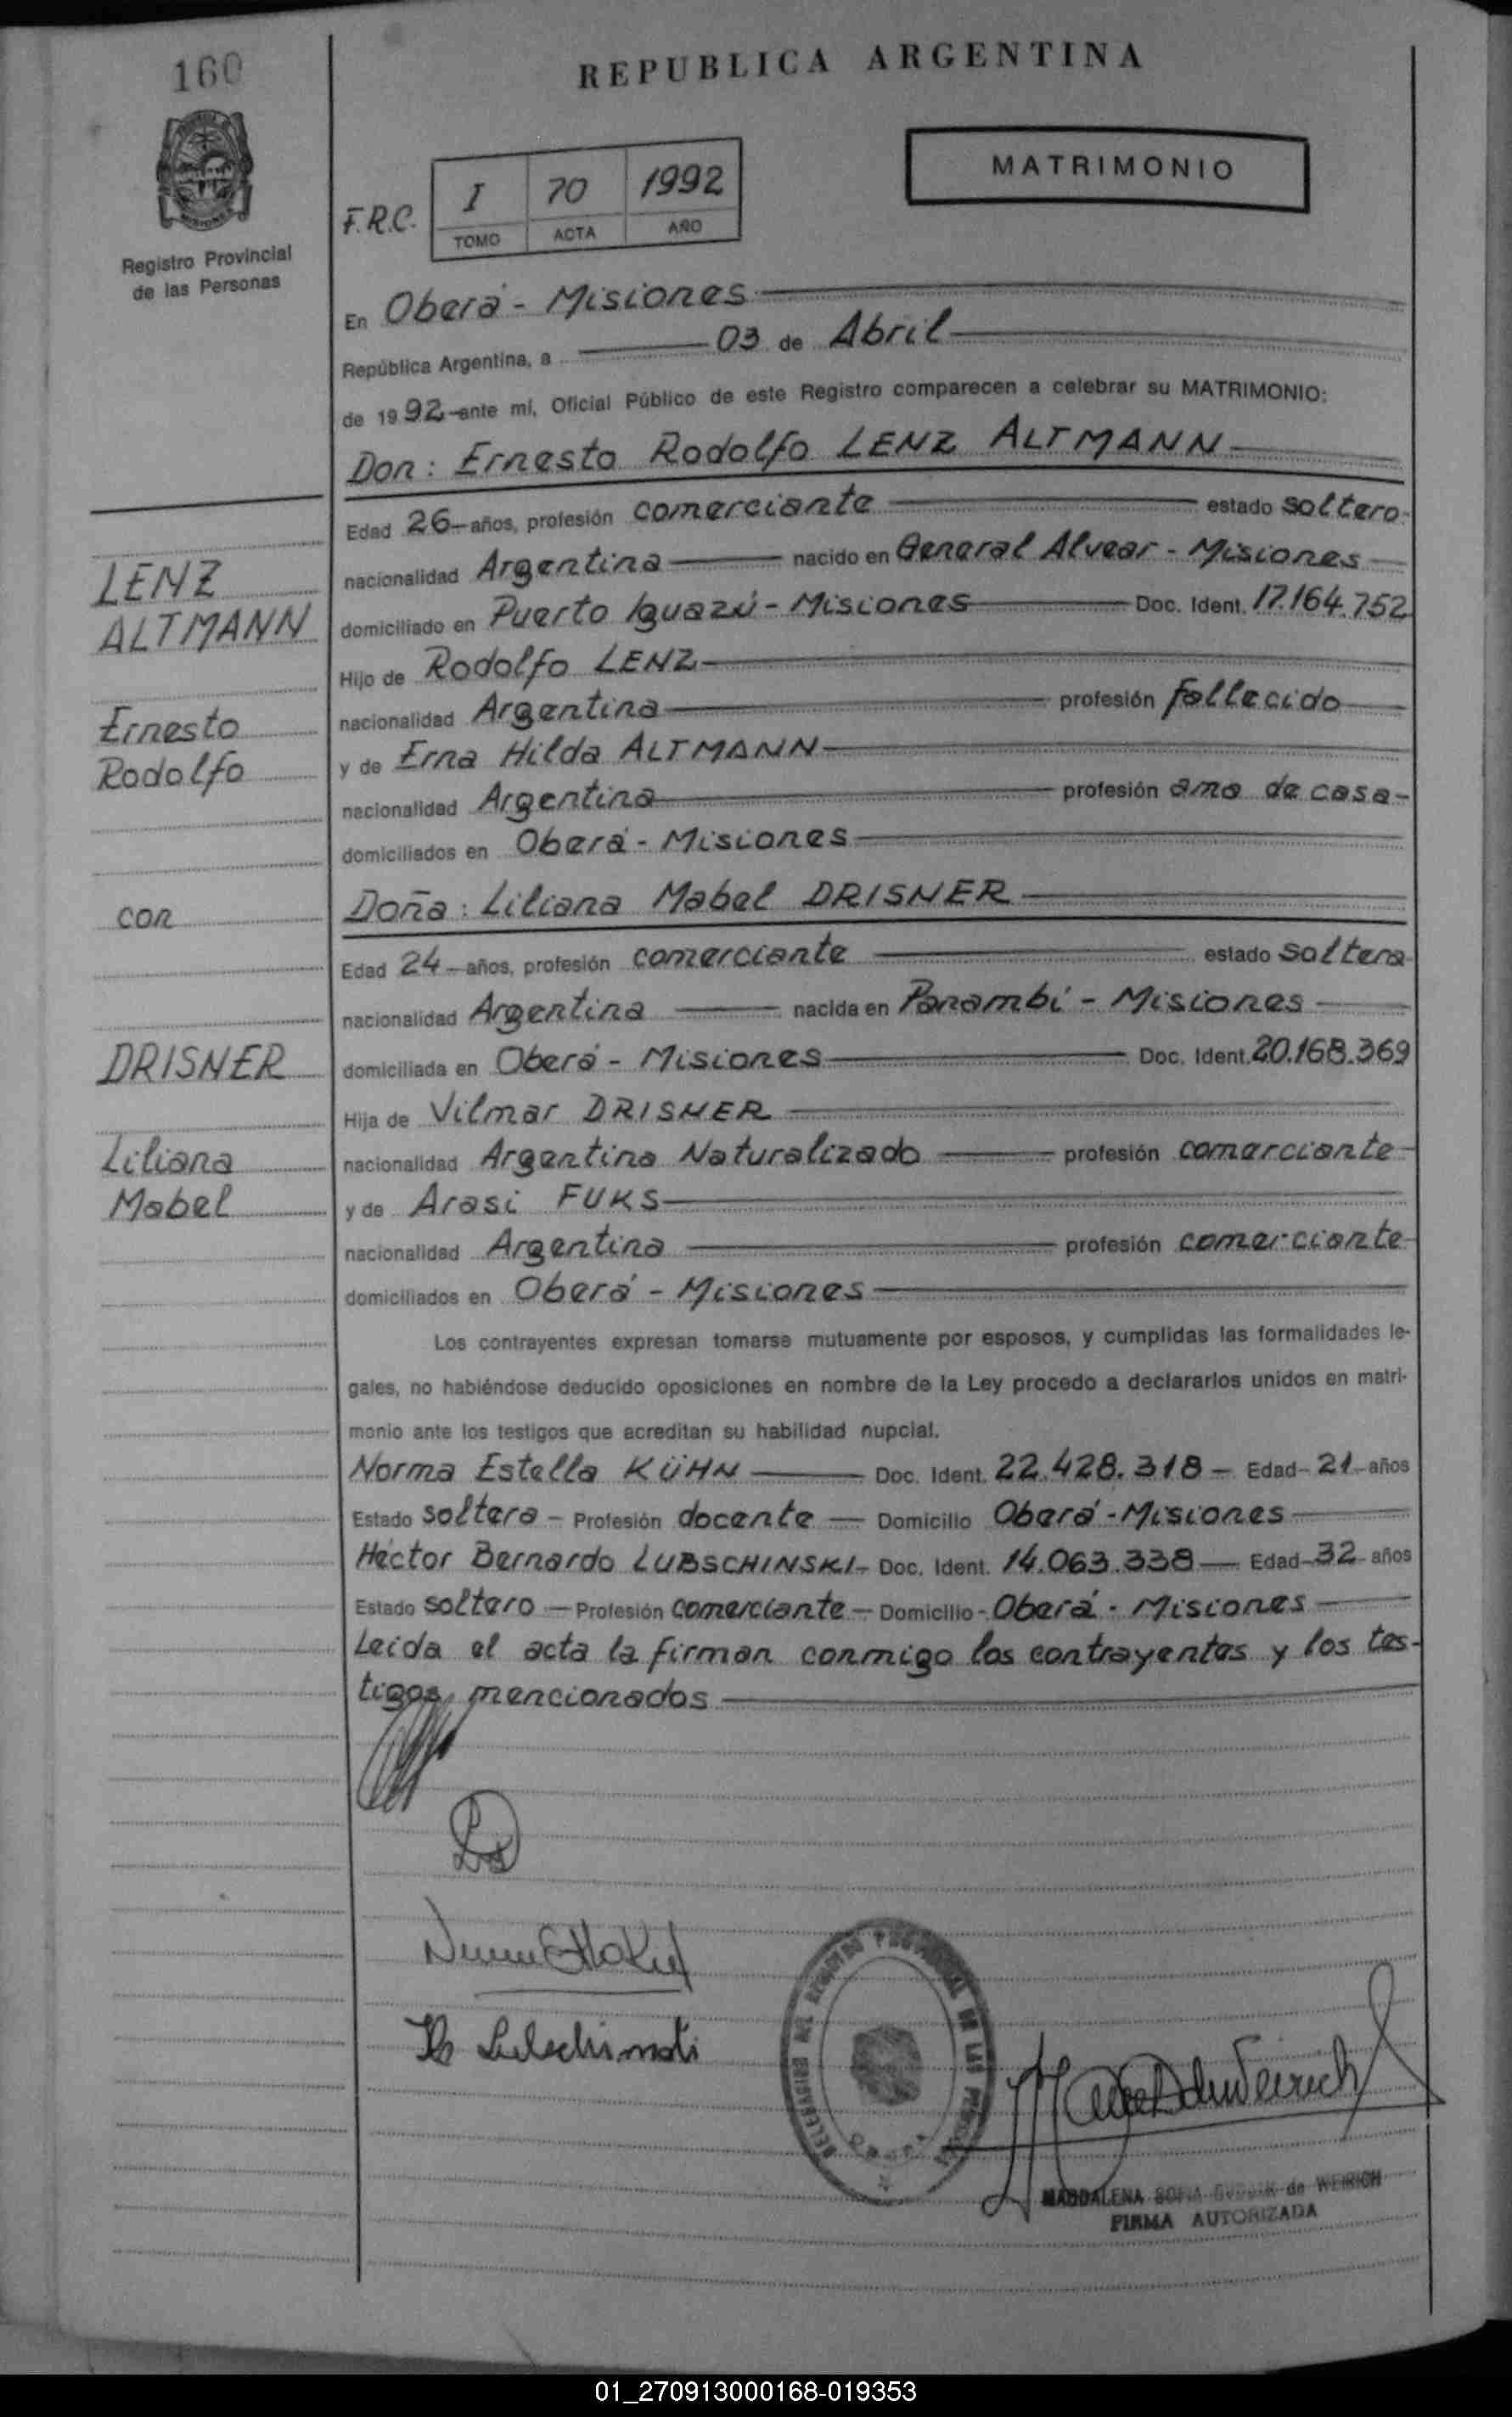 160
REPUBLICA ARGENTINA
MATRIMONIO
F.R.C.
I 70 1992
TOMO ACTA AÑO
Registro Provincial
de las Personas
En Oberá - Misiones
República Argentina, a 03 de Abril
de 1992 ante mí, Oficial Público de este Registro comparecen a celebrar su MATRIMONIO:
Don: Ernesto Rodolfo LENZ ALTMANN
Edad 26 años, profesión comerciante estado soltero
nacionalidad Argentina nacido en General Alvear - Misiones
domiciliado en Puerto Iguazú - Misiones Doc. Ident. 17.164.752
Hijo de Rodolfo LENZ
nacionalidad Argentina profesión fallecido
y de Erna Hilda ALTMANN
nacionalidad Argentina profesión ama de casa
domiciliados en Oberá - Misiones
Doña: Liliana Mabel DRISNER
Edad 24 años, profesión comerciante estado soltera
nacionalidad Argentina nacida en Panambí - Misiones
domiciliada en Oberá - Misiones Doc. Ident. 20.168.369
Hija de Vilmar DRISNER
nacionalidad Argentino Naturalizado profesión comerciante
y de Arasi FUKS
nacionalidad Argentina profesión comerciante
domiciliados en Oberá - Misiones
Los contrayentes expresan tomarse mutuamente por esposos, y cumplidas las formalidades le-
gales, no habiéndose deducido oposiciones en nombre de la Ley procedo a declararlos unidos en matri-
monio ante los testigos que acreditan su habilidad nupcial.
Norma Estella KÜHN Doc. Ident. 22.428.318 - Edad 21 años
Estado soltera - Profesión docente - Domicilio Oberá - Misiones
Héctor Bernardo LUBSCHINSKI - Doc. Ident. 14.063.338 - Edad 32 años
Estado soltero - Profesión comerciante - Domicilio - Oberá - Misiones
Leida el acta la firman conmigo los contrayentes y los tes-
tigos mencionados
LENZ
ALTMANN
Ernesto
Rodolfo
con
DRISNER
Liliana
Mabel
DELEGACION DEL REGISTRO PROVINCIAL DE LAS PERSONAS
MAGDALENA SOFIA de WEIRICH
FIRMA AUTORIZADA
01_270913000168-019353